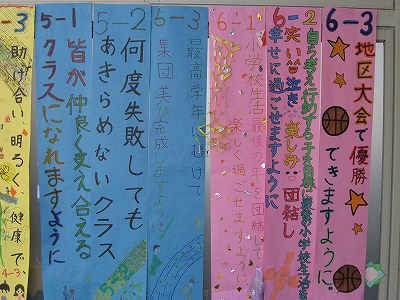 6-3
地区大会で優勝
できますように。
2自ら考え行動する子を目標に最後の小学校生活を
笑い皆で泣き 楽しみ 団結し
6 幸せに過ごせますように
6-1
小学校生活最後の年を団結して
楽しく過ごせますように
6-3
最高学年に向けて
集団美が完成しますように
5-2
何度失敗しても
あきらめないクラス
5-1
皆が仲良く支え合える
クラスになれますように
-3
助け合い、明るく、健康で
4-3